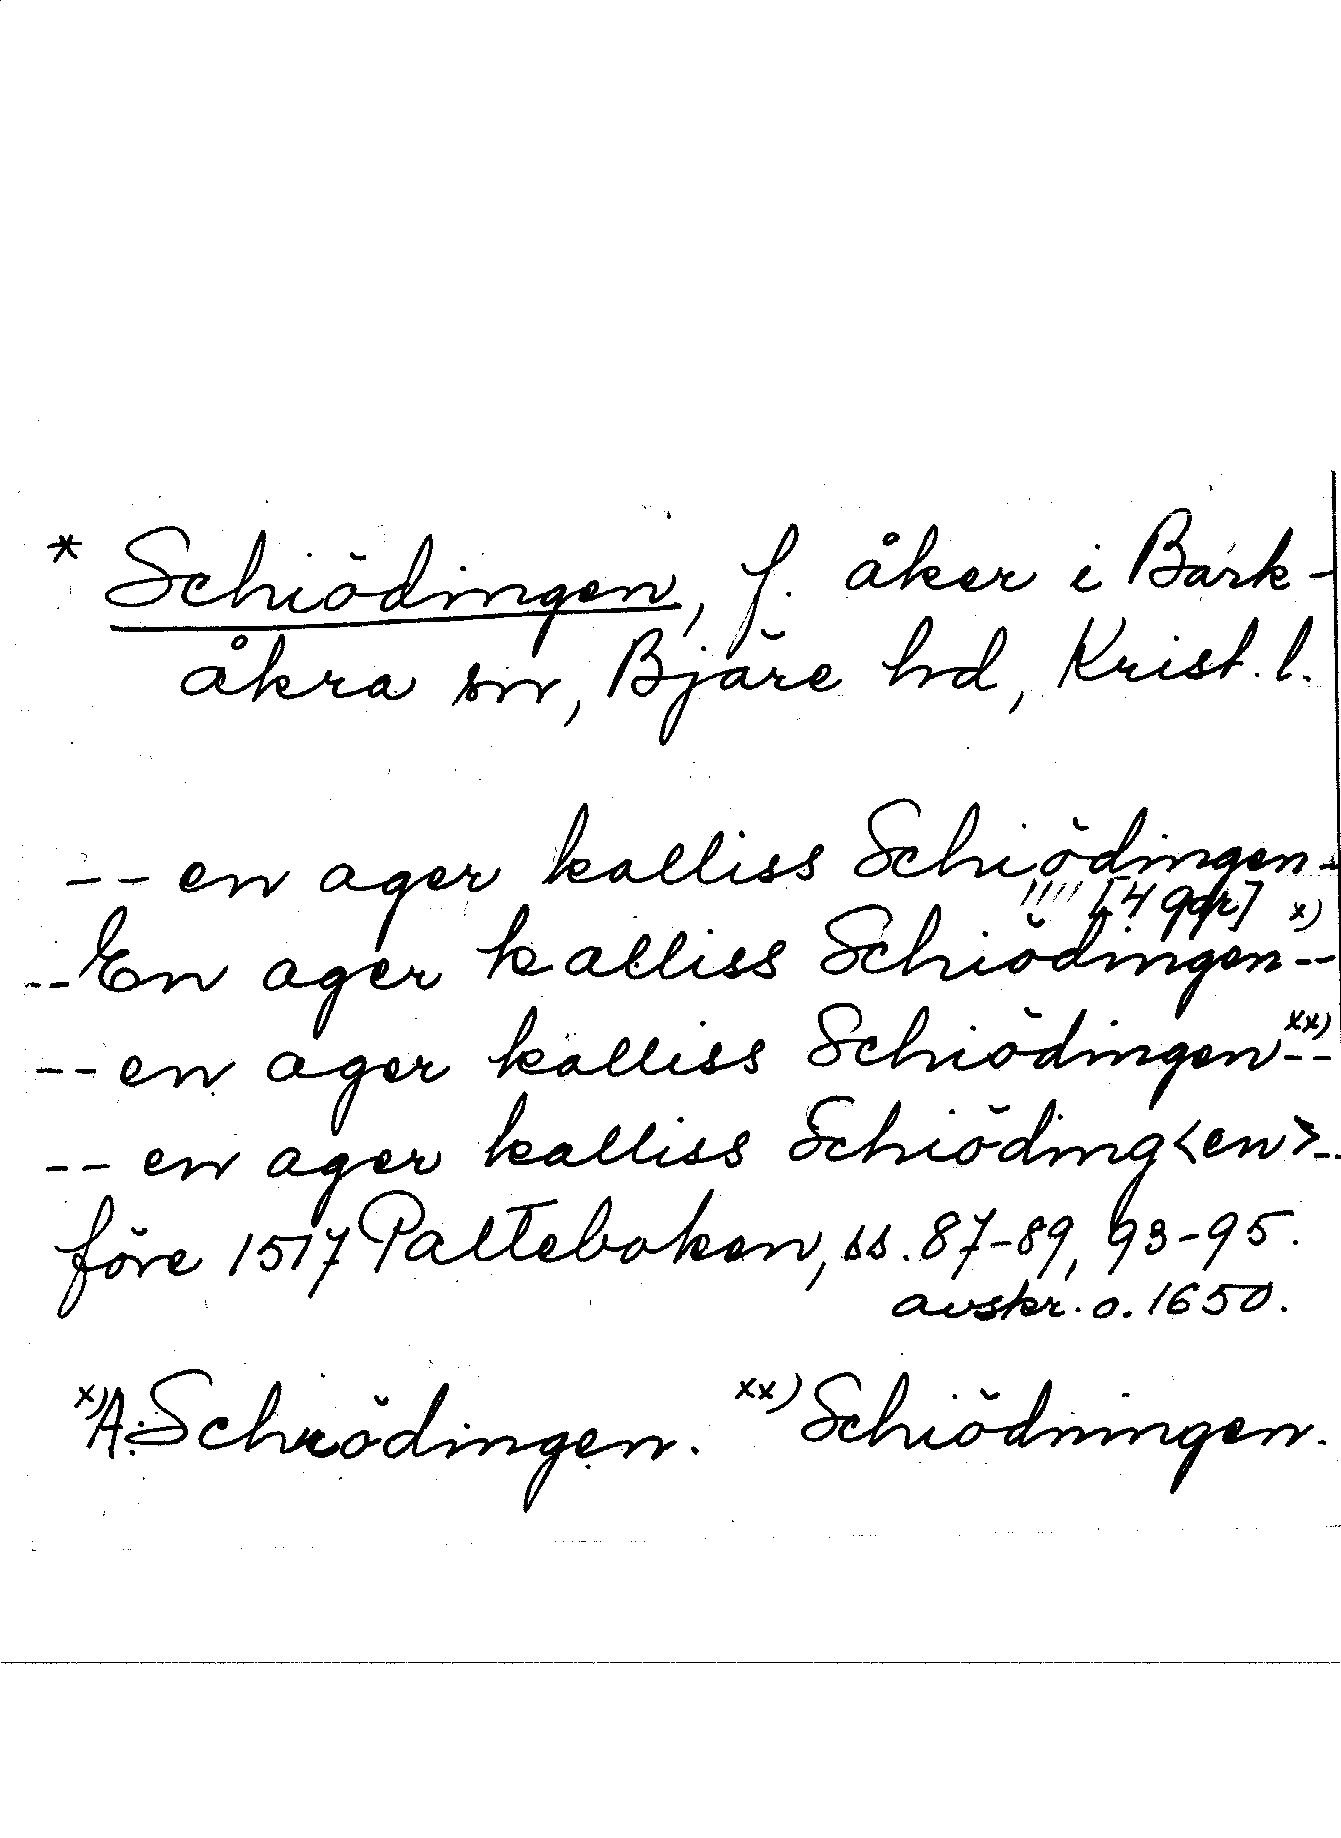 * Schiödingen, f. åker i Bark-
åkra sn, Bjäre hd, Krist. l.
-- en ager kalliss Schiödingen-
'''' [4 ggr] x)
-- En ager kalliss Schiödingen --
xx)
-- en ager kalliss Schiödingen --
-- en ager kalliss Schiöding<en> --
före 1517 Palteboken, ss. 87-89, 93-95.
avskr. o. 1650.
x) A: Schrödingen. xx) Schiödningen.